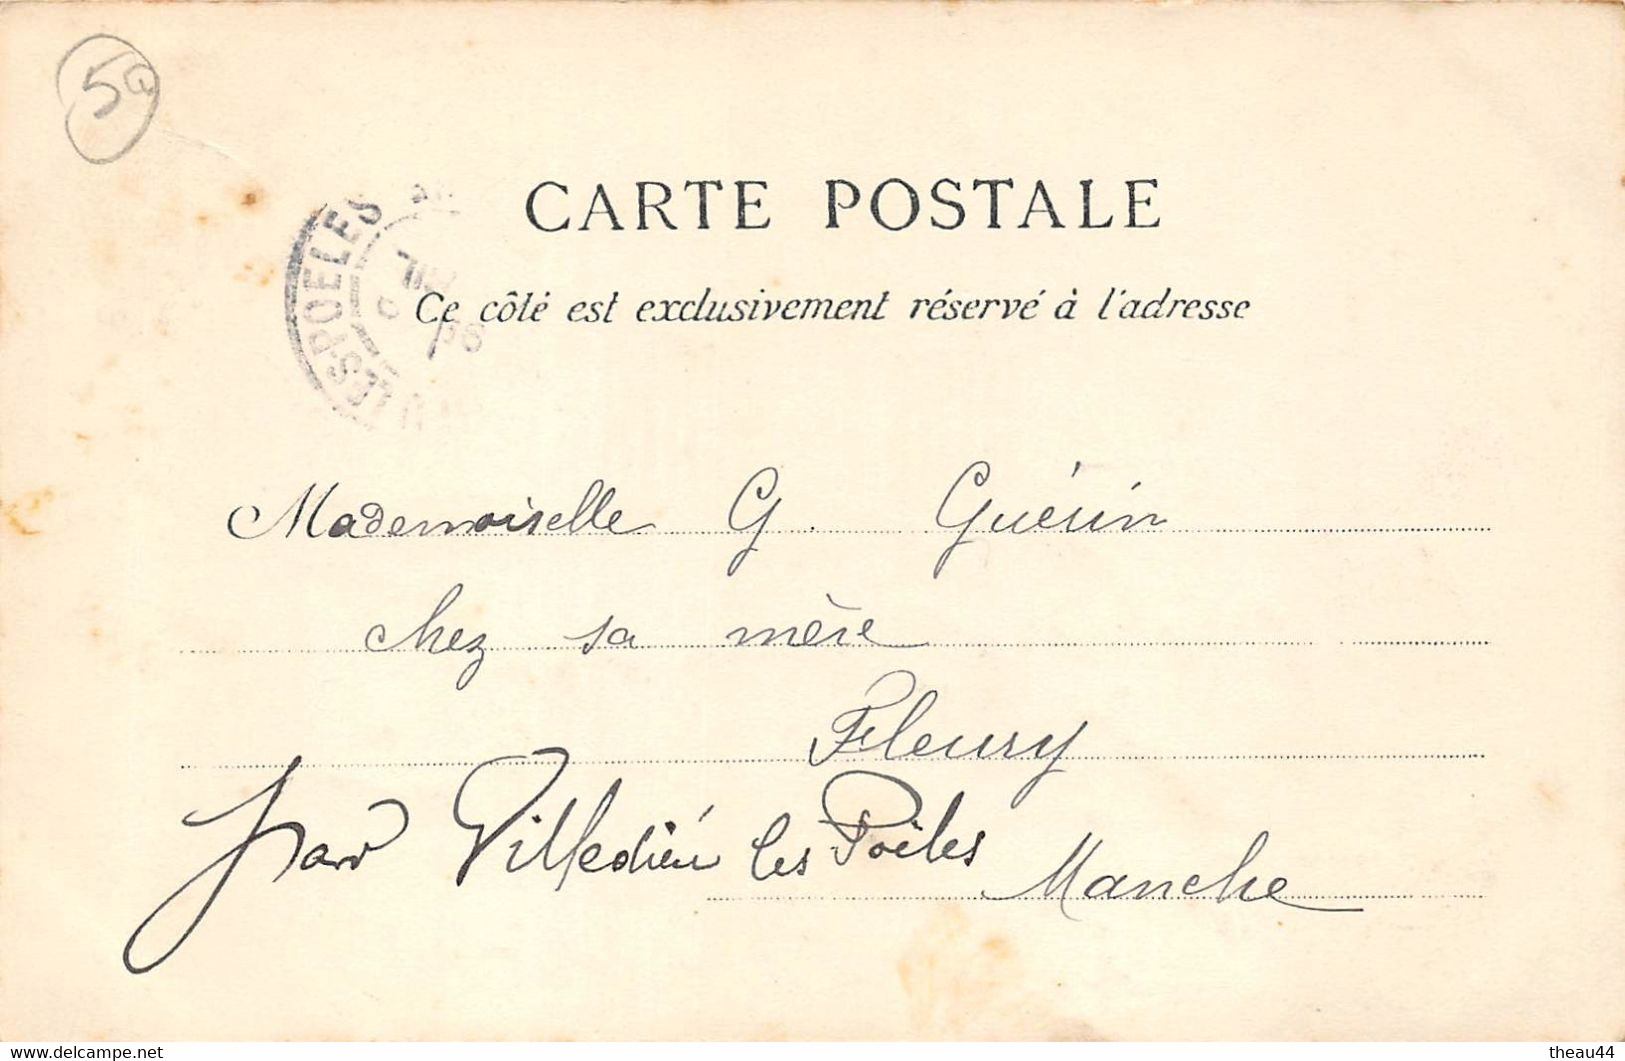 50
CARTE POSTALE
Ce côté est exclusivement réservé à l'adresse
LES POELES
Mademoiselle G. Guérin
chez sa mère
Fleury
par Villedieu les Poëles
Manche
delcampe.net
theau44